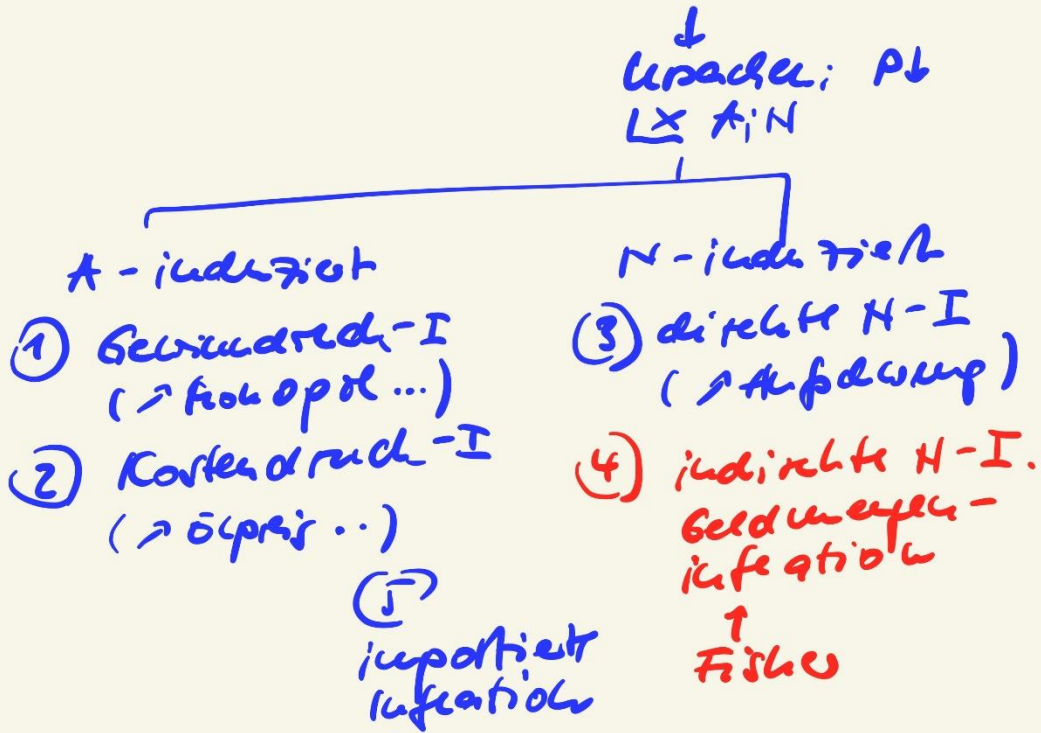 ↓
Ursachen: P↓
A; N
A - induziert
① Gewinndruck-I
(↗ Monopol ...)
② Kostendruck-I
(↗ Ölpreis ..)
⑤
importierte
Inflation
N - induziert
③ direkte N-I
(↗ Aufschwung)
④ indirekte N-I.
Geldmengen-
inflation
↑
Fisher